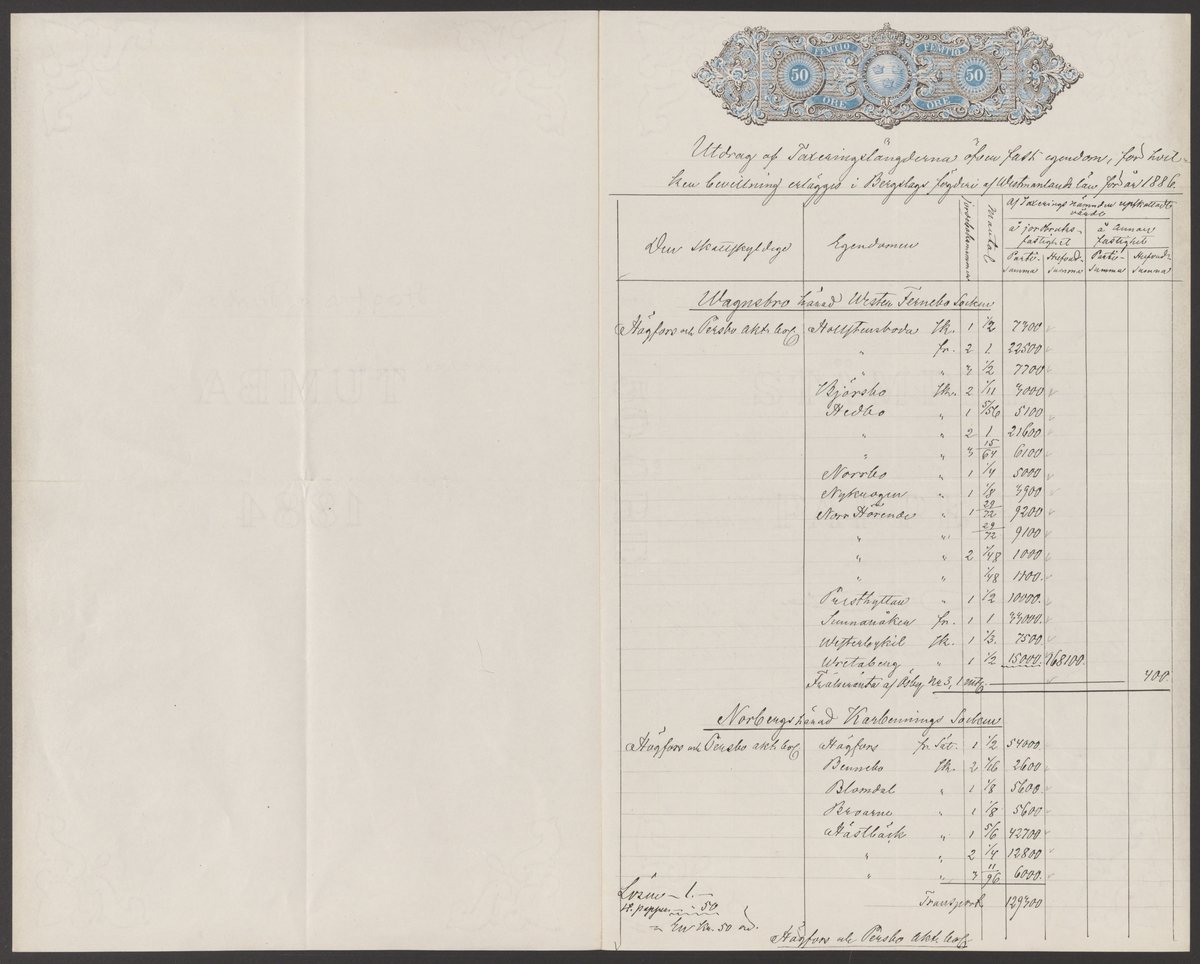 FEMTIO FEMTIO
50 50
ÖRE ÖRE
Utdrag af Taxeringslängderna öfver fast egendom, för hvil-
ken bevillning erlägges i Bergslags fögderi af Westmanlands län för år 1886.
Den skattskyldige Egendomen Jordeboksnummer Mantal Af Taxeringsnämnden uppskattadt värde
å jordbruks-fastighet å annan fastighet
Parti-summa Hufvud-summa Parti-summa Hufvud-summa
Wagnsbro härad Wester Fernebo Socken
Högfors och Persbo akt. bol. Holfstensboda Sk. 1 1/2 7300
" fr. 2 1 22500
" " 3 1/2 7700
Björsbo Sk. 2 1/11 3000
Hedbo " 1 5/56 5100
" " 2 1 21600
" " 3 15/64 6100
Norrbo " 1 1/4 5000
Nykrogen " 1 1/8 3900
Norr Hörende " 1 29/72 9200
" " 29/72 9100
" " 2 1/48 1000
" " 1/48 1100
Presthyttan " 1 1/2 10000
Sunnanåker fr. 1 1 33000
Westerbykil Sk. 1 1/3 7500
Wretaberg " 1 1/2 15000 168100
Frälseränta af Åsby Nr 3, 1 mtl. 400
Norbergs härad Karbennings Socken
Högfors och Persbo akt. bol. Högfors fr. Sät. 1 1/2 54000
Bennebo Sk. 2 1/16 2600
Blomdal " 1 1/8 5600
Broarne " 1 1/8 5600
Hästbäck " 1 5/6 42700
" " 2 1/4 12800
" " 3 11/96 6000
Transport 129300
Lösen 1.
St. papper 50
En Kr. 50 öre.
Högfors och Persbo akt. bol.
TUMBA
1884